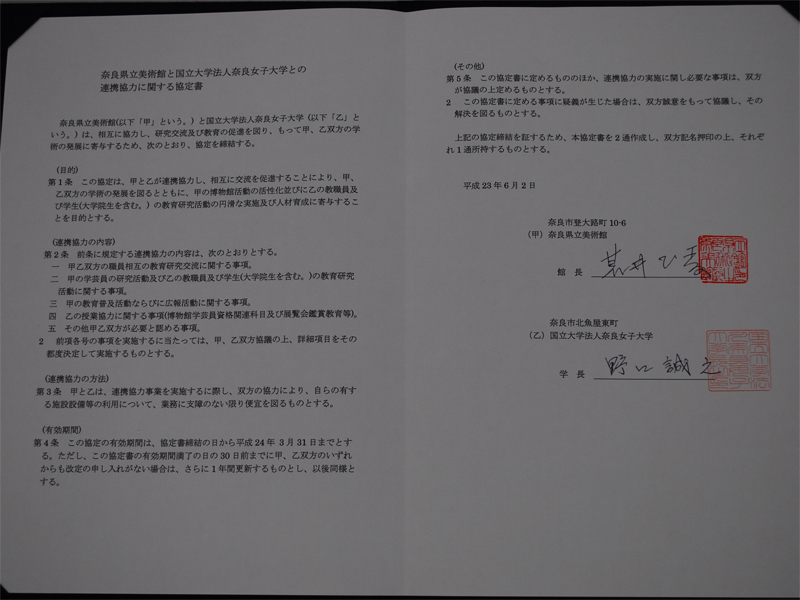 奈良県立美術館と国立大学法人奈良女子大学との
連携協力に関する協定書
奈良県立美術館(以下「甲」という。)と国立大学法人奈良女子大学(以下「乙」と
いう。)は、相互に協力し、研究交流及び教育の促進を図り、もって甲、乙双方の学
術の発展に寄与するため、次のとおり、協定を締結する。
(目的)
第1条 この協定は、甲と乙が連携協力し、相互に交流を促進することにより、甲、
乙双方の学術の発展を図るとともに、甲の博物館活動の活性化並びに乙の教職員及
び学生(大学院生を含む。)の教育研究活動の円滑な実施及び人材育成に寄与するこ
とを目的とする。
(連携協力の内容)
第2条 前条に規定する連携協力の内容は、次のとおりとする。
一 甲乙双方の職員相互の教育研究交流に関する事項。
二 甲の学芸員の研究活動及び乙の教職員及び学生(大学院生を含む。)の教育研究
活動に関する事項。
三 甲の教育普及活動ならびに広報活動に関する事項。
四 乙の授業協力に関する事項(博物館学芸員資格関連科目及び展覧会鑑賞教育等)。
五 その他甲乙双方が必要と認める事項。
2 前項各号の事項を実施するに当たっては、甲、乙双方協議の上、詳細項目をその
都度決定して実施するものとする。
(連携協力の方法)
第3条 甲と乙は、連携協力事業を実施するに際し、双方の協力により、自らの有す
る施設設備等の利用について、業務に支障のない限り便宜を図るものとする。
(有効期間)
第4条 この協定の有効期間は、協定書締結の日から平成24年3月31日までとす
る。ただし、この協定書の有効期間満了の日の30日前までに甲、乙双方のいずれ
からも改定の申し入れがない場合は、さらに1年間更新するものとし、以後同様と
する。
(その他)
第5条 この協定書に定めるもののほか、連携協力の実施に関し必要な事項は、双方
が協議の上定めるものとする。
2 この協定書に定める事項に疑義が生じた場合は、双方誠意をもって協議し、その
解決を図るものとする。
上記の協定締結を証するため、本協定書を2通作成し、双方記名押印の上、それぞ
れ1通所持するものとする。
平成23年6月2日
奈良市登大路町10-6
(甲)奈良県立美術館
館 長
奈良市北魚屋東町
(乙)国立大学法人奈良女子大学
学 長 野口誠之